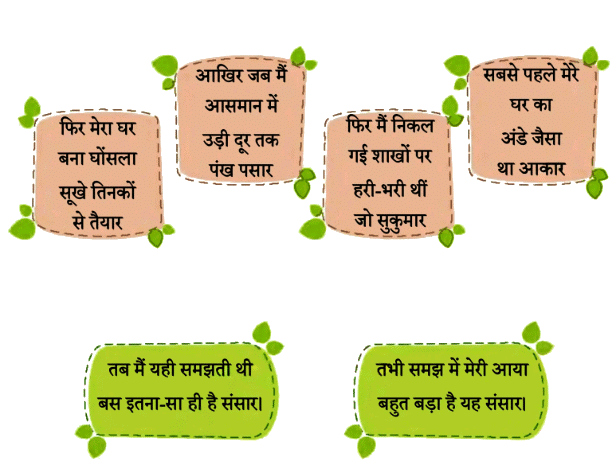 फिर मेरा घर
बना घोंसला
सूखे तिनकों
से तैयार
आखिर जब मैं
आसमान में
उड़ी दूर तक
पंख पसार
फिर मैं निकल
गई शाखों पर
हरी-भरी थीं
जो सुकुमार
सबसे पहले मेरे
घर का
अंडे जैसा
था आकार
तब मैं यही समझती थी
बस इतना-सा ही है संसार।
तभी समझ में मेरी आया
बहुत बड़ा है यह संसार।